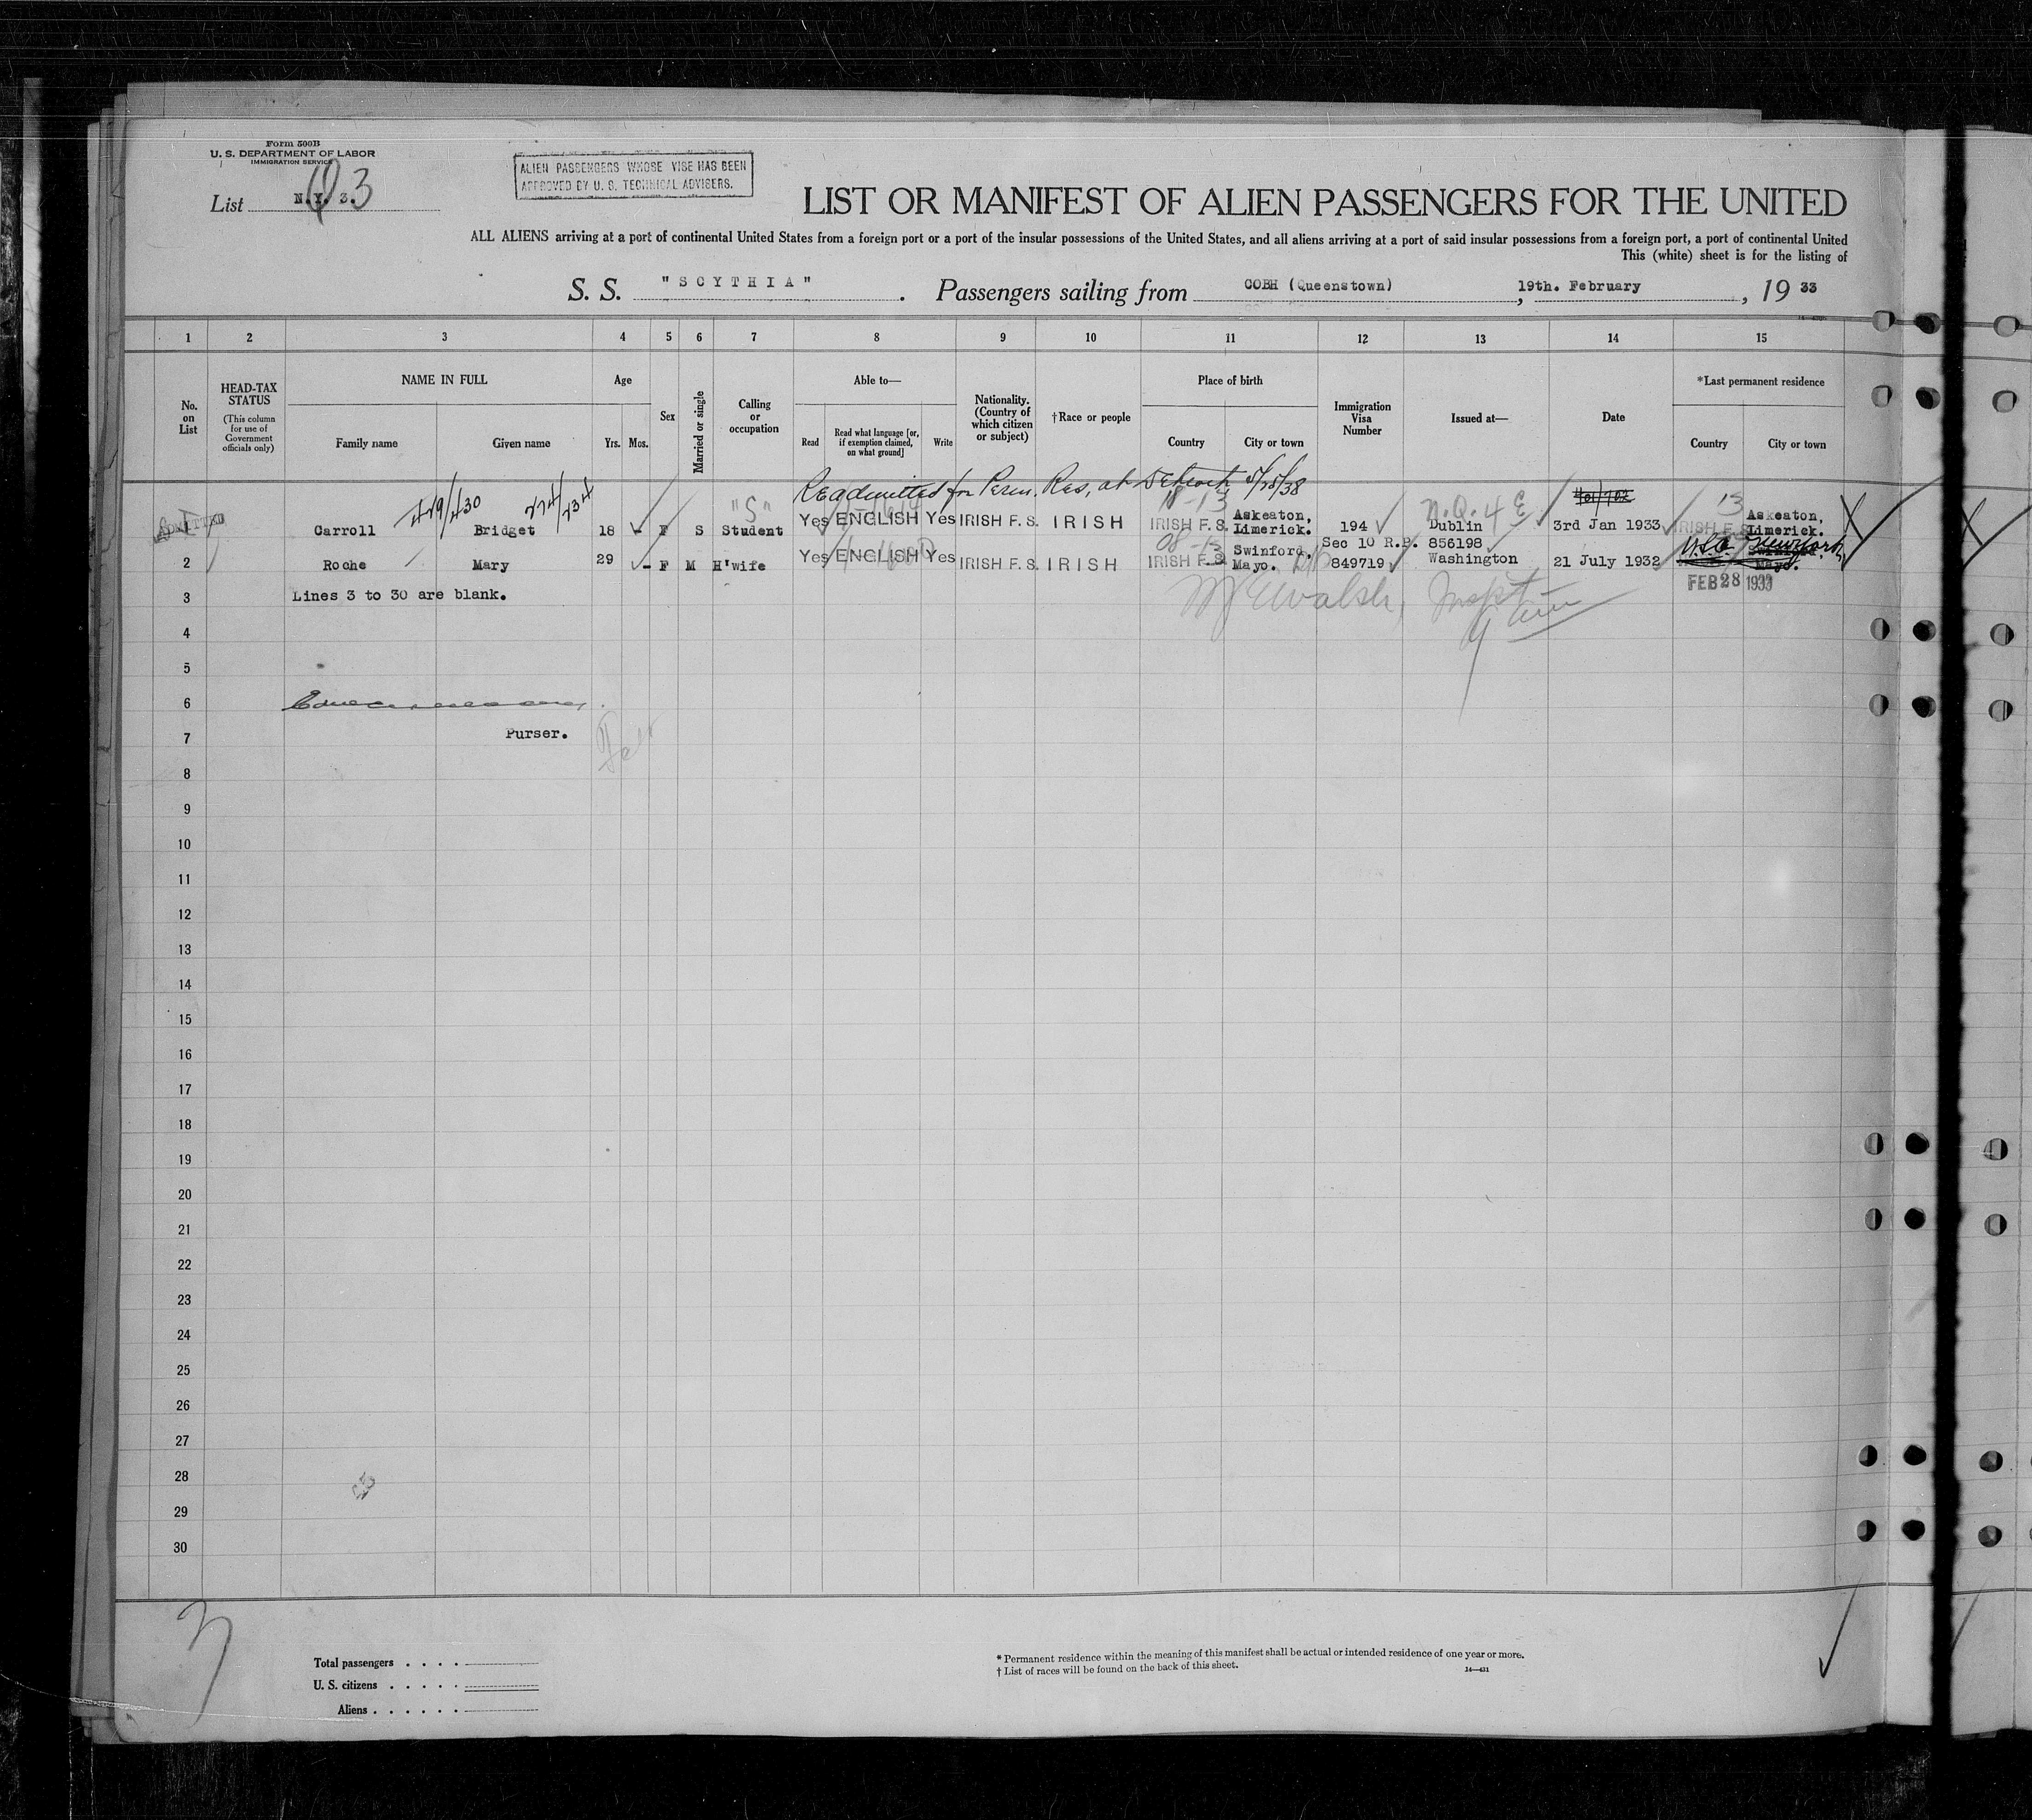 Form 500B
U. S. DEPARTMENT OF LABOR
IMMIGRATION SERVICE
List N.Y. 3. 3
ALIEN PASSENGERS WHOSE VISE HAS BEEN
APPROVED BY U. S. TECHNICAL ADVISERS.
LIST OR MANIFEST OF ALIEN PASSENGERS FOR THE UNITED
ALL ALIENS arriving at a port of continental United States from a foreign port or a port of the insular possessions of the United States, and all aliens arriving at a port of said insular possessions from a foreign port, a port of continental United
This (white) sheet is for the listing of
S. S. "SCYTHIA". Passengers sailing from COBH (Queenstown), 19th. February, 19 33
1 2 3 4 5 6 7 8 9 10 11 12 13 14 15
No. on List
HEAD-TAX STATUS
(This column for use of Government officials only)
NAME IN FULL
Family name Given name
Age
Yrs. Mos.
Sex
Married or single
Calling or occupation
Able to—
Read Read what language [or, if exemption claimed, on what ground] Write
Nationality. (Country of which citizen or subject)
†Race or people
Place of birth
Country City or town
Immigration Visa Number
Issued at—
Date
*Last permanent residence
Country City or town
Readmitted for Perm. Res, at Detroit 5/25/38
449/430 774/734 "S" 18-13 N.Q. 4 E 13
ADMITTED Carroll Bridget 18 - F S Student Yes ENGLISH Yes IRISH F.S. IRISH IRISH F.S. Askeaton, Limerick. 194 Dublin 3rd Jan 1933 IRISH F.S. Askeaton, Limerick.
08-13 Sec 10 R.P. 856198
2 Roche Mary 29 - F M H'wife Yes ENGLISH Yes IRISH F.S. IRISH IRISH F.S. Swinford, Mayo. 849719 Washington 21 July 1932 U.S.A. New York Swinford, Mayo.
FEB 28 1933
3 Lines 3 to 30 are blank.
Walsh, Inspt
4
5
6
7 Purser.
8
9
10
11
12
13
14
15
16
17
18
19
20
21
22
23
24
25
26
27
28
29
30
3
Total passengers . . . .
U. S. citizens . . . . .
Aliens . . . . . .
* Permanent residence within the meaning of this manifest shall be actual or intended residence of one year or more.
† List of races will be found on the back of this sheet.
14—431